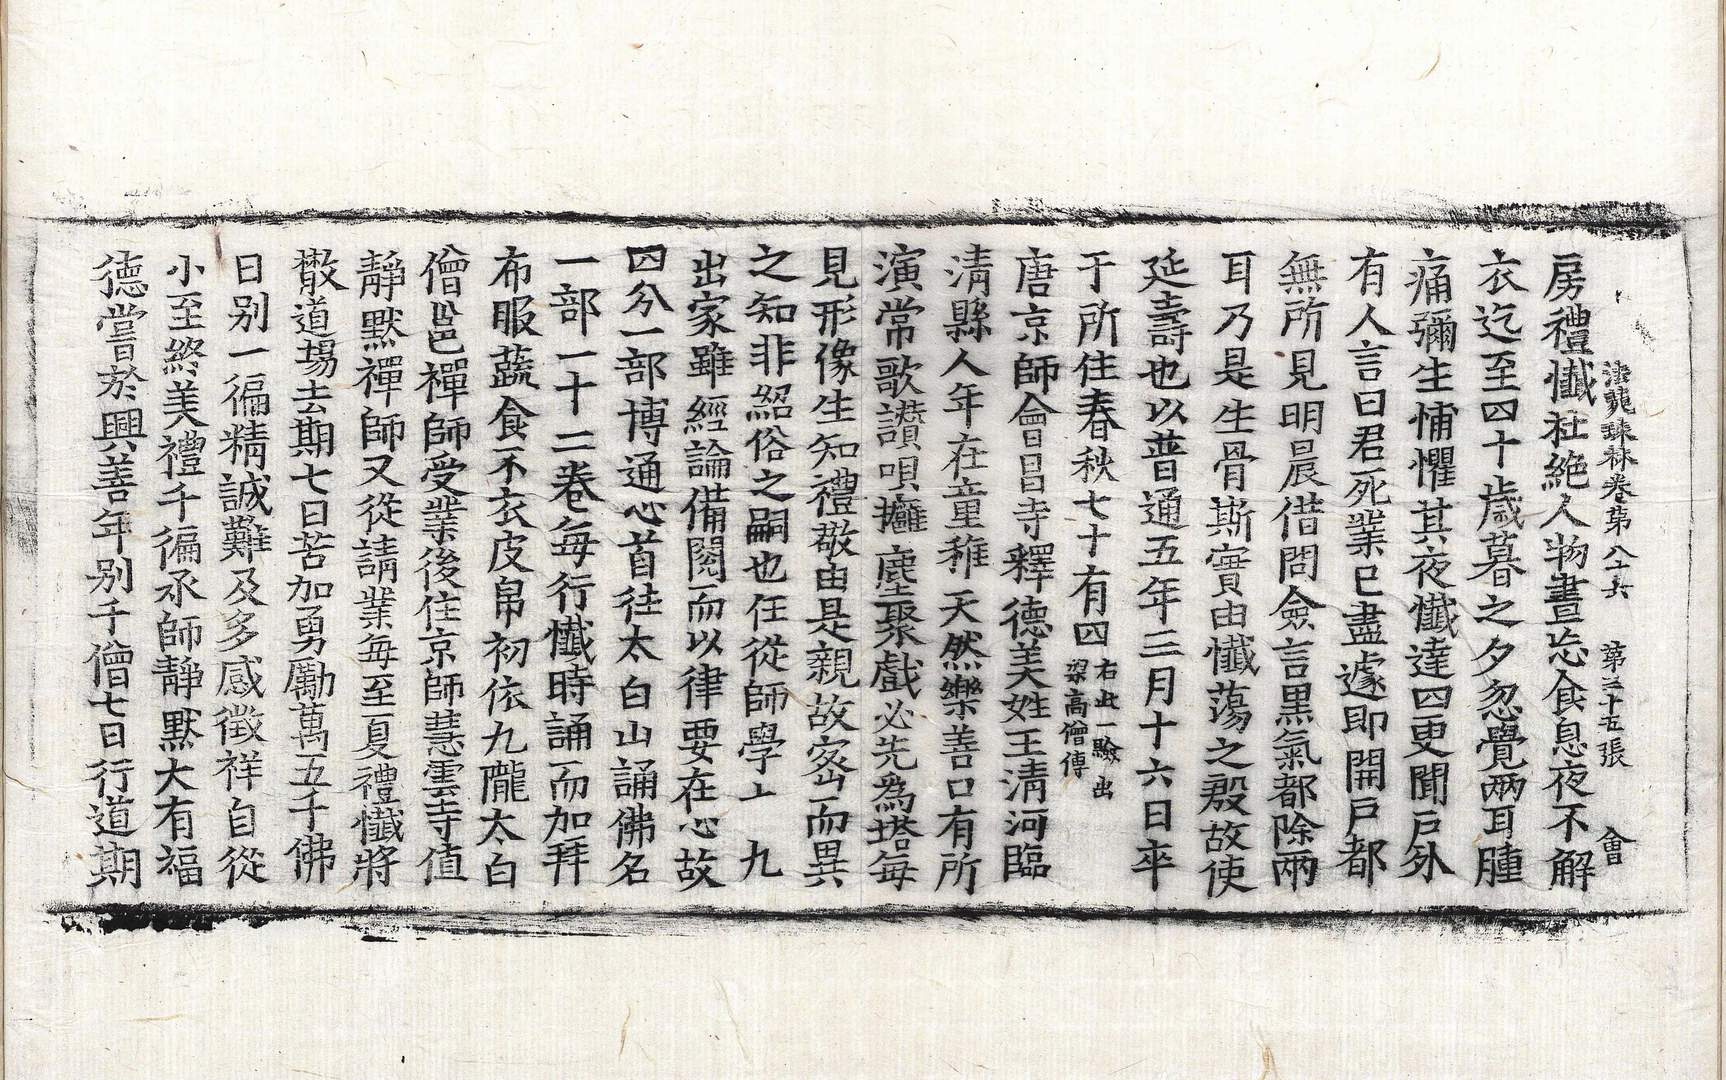 法苑珠林卷第八十六　第三十五張　會
房禮懺杜絶人物晝忘食息夜不解
衣迄至四十歲暮之夕忽覺兩耳腫
痛彌生怖懼其夜懺達四更聞戶外
有人言曰君死業已盡遽即開戶都
無所見明晨借問僉言黑氣都除兩
耳乃是生骨斯實由懺蕩之殷故使
延壽也以普通五年三月十六日卒
于所住春秋七十有四右此一驗出梁高僧傳
唐京師會昌寺釋德美姓王清河臨
清縣人年在童稚天然樂善口有所
演常歌讃唄擁塵聚戲必先爲塔每
見形像生知禮敬由是親故密而異
之知非紹俗之嗣也任從師學上九
出家雖經論備閱而以律要在心故
四分一部博通心首往太白山誦佛名
一部一十二卷每行懺時誦而加拜
布服蔬食不衣皮帛初依九隴太白
僧邕禪師受業後住京師慧雲寺值
靜默禪師又從請業每至夏禮懺將
散道場去期七日苦加勇勵萬五千佛
日別一徧精誠難及多感徵祥自從
小至終美禮千徧承師靜默大有福
德嘗於興善年別千僧七日行道期